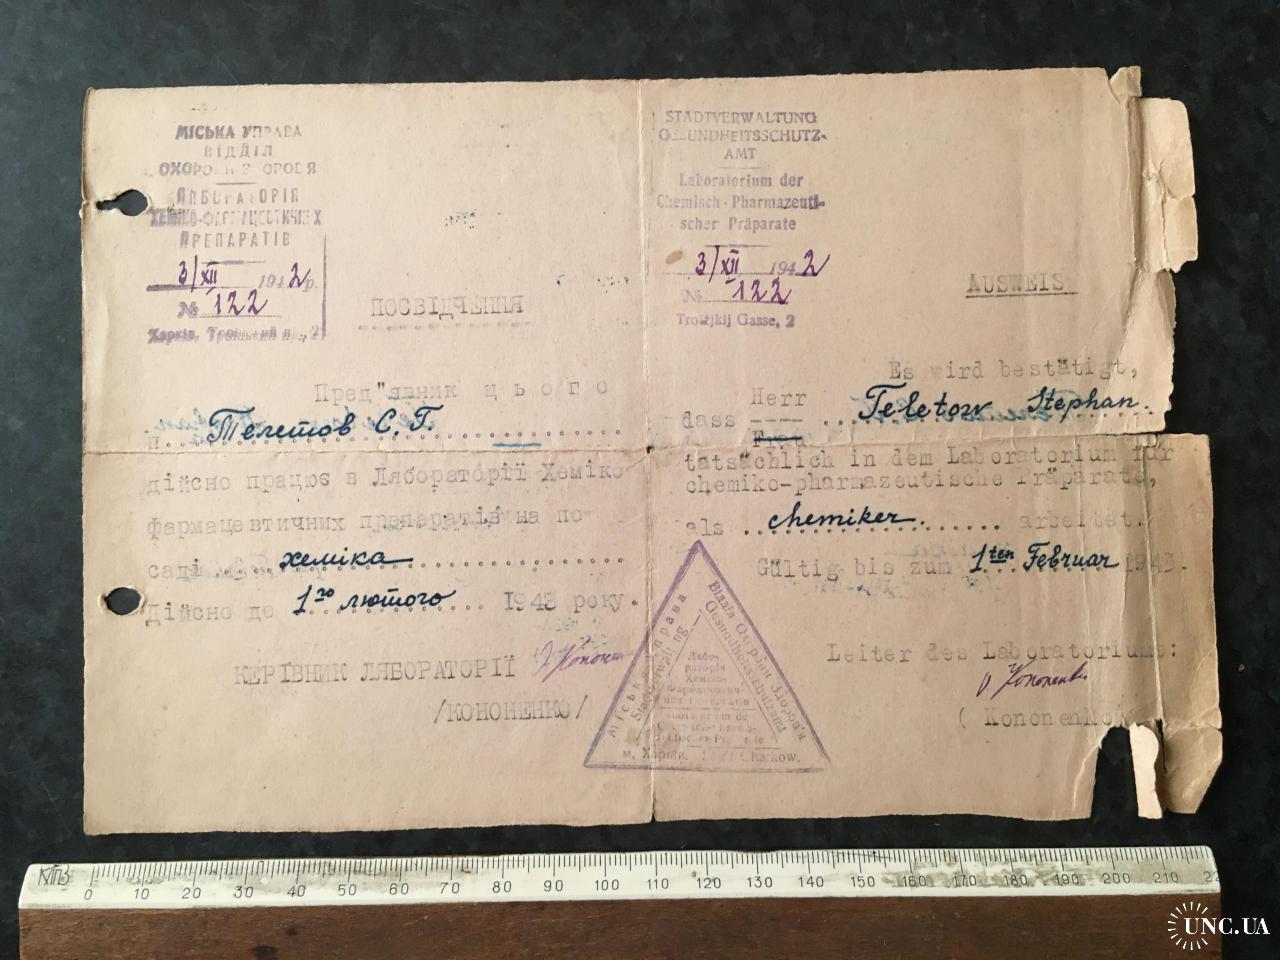 МІСЬКА УПРАВА
ВІДДІЛ
ОХОРОНИ ЗДОРОВЯ
ЛЯБОРАТОРІЯ
ХЕМІКО-ФАРМАЦЕВТИЧНИХ
ПРЕПАРАТІВ
3/XII 1942р.
№ 122
Харків, Троїцький п., 2
ПОСВІДЧЕННЯ
Пред"явник цього
п. Телетов С.Г.
дійсно працює в Лябораторії Хеміко
фармацевтичних препаратів на по-
саді хеміка
Дійсно де 1го лютого 1943 року.
КЕРІВНИК ЛЯБОРАТОРІЇ
/КОНОНЕНКО/
STADTVERWALTUNG
GESUNDHEITSSCHUTZ-
AMT
Laboratorium der
Chemisch-Pharmazeuti-
scher Präparate
3/XII 1942
№ 122
Troizjkij Gasse, 2
AUSWEIS
Es wird bestätigt,
Herr
dass Teletow Stephan
Frau
tatsächlich in dem Laboratorium für
chemiko-pharmazeutische Präparate,
als chemiker. arbeitet.
Gültig bis zum 1ten Februar 1943.
Leiter des Laboratoriums:
O. Kononenko
( Kononenko
Міська управа
Stadtverwaltung
Відділ Охорони Здоров'я
Gesundheitsschutzamt
Лябо-
раторія
Хеміко-
Фармацевтич-
них Препаратів
м. Харків. Stadt Charkow.
КТПЗ
0 10 20 30 40 50 60 70 80 90 100 110 120 130 140 150 160 170 180 190 200 210 22
UNC.UA